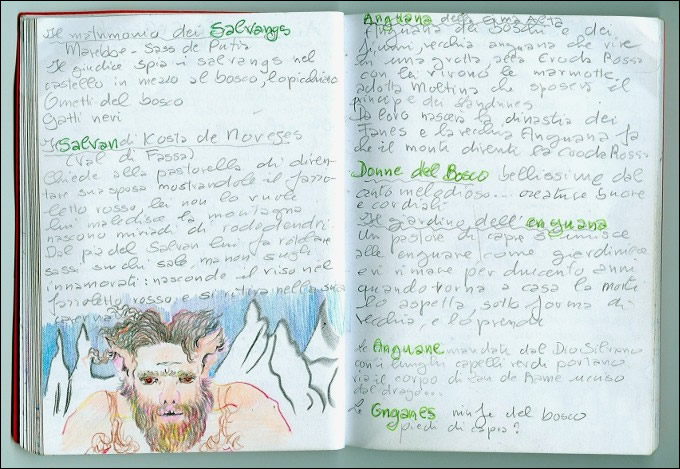 Il matrimonio dei Salvangs
Marebbe - Sass de Putia
Il giudice spia i salvangs nel
castello in mezzo al bosco, lo picchiano
Ometti del bosco
Gatti neri
Il Salvan di Kosta de Moveges
(Val di Fassa)
Chiede alla pastorella di diven-
tare sua sposa mostrandole il fazzo-
letto rosso, lei non lo vuole
lui maledisce la montagna
nascono miriadi di rododendri
Dal pia del Salvan lui fa rotolare
sassi su chi sale, ma non sugli
innamorati: nasconde il viso nel
fazzoletto rosso e si ritira nella sua
caverna
Anguana della Croda Alta
Anguana dei boschi e dei
fiumi, vecchia anguana che vive
in una grotta, alla Croda Rossa
con lei vivono le marmotte.
adotta Moltina che sposerà il
principe dei Landrines
Da loro nascerà la dinastia dei
Fanes e la vecchia Anguana fa
che il monte diventi la Croda Rossa
Donne del Bosco bellissime dal
canto melodioso... creature buone
e cordiali
Il giardino dell'enguana
Un pastore di capre si unisce
alle enguane come giardiniere
e vi rimane per duecento anni
quando torna a casa la morte
lo aspetta sotto forma di
vecchia, e lo prende
Le Anguane mandate dal Dio Silvano
con i lunghi capelli verdi portano
via il corpo di Zan de Rame ucciso
dal drago...
Le Gnganes ninfe del bosco
piedi di capra?